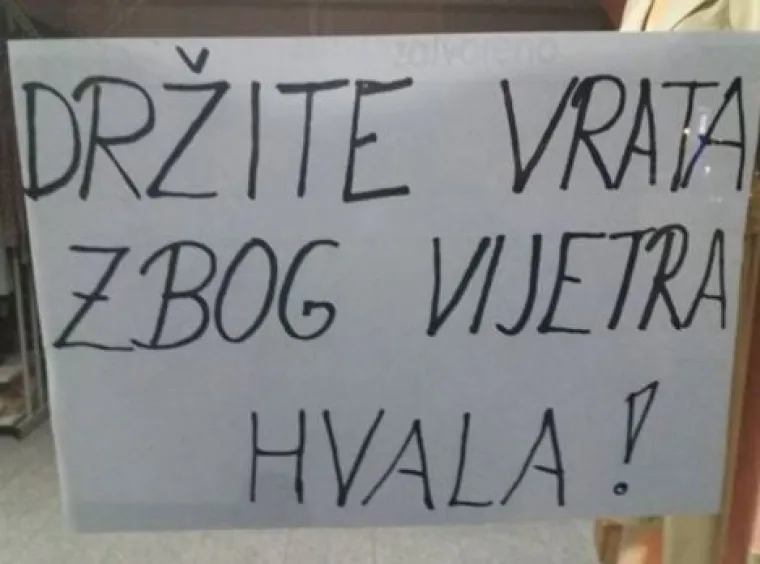 zatvoreno
DRŽITE VRATA
ZBOG VIJETRA
HVALA!